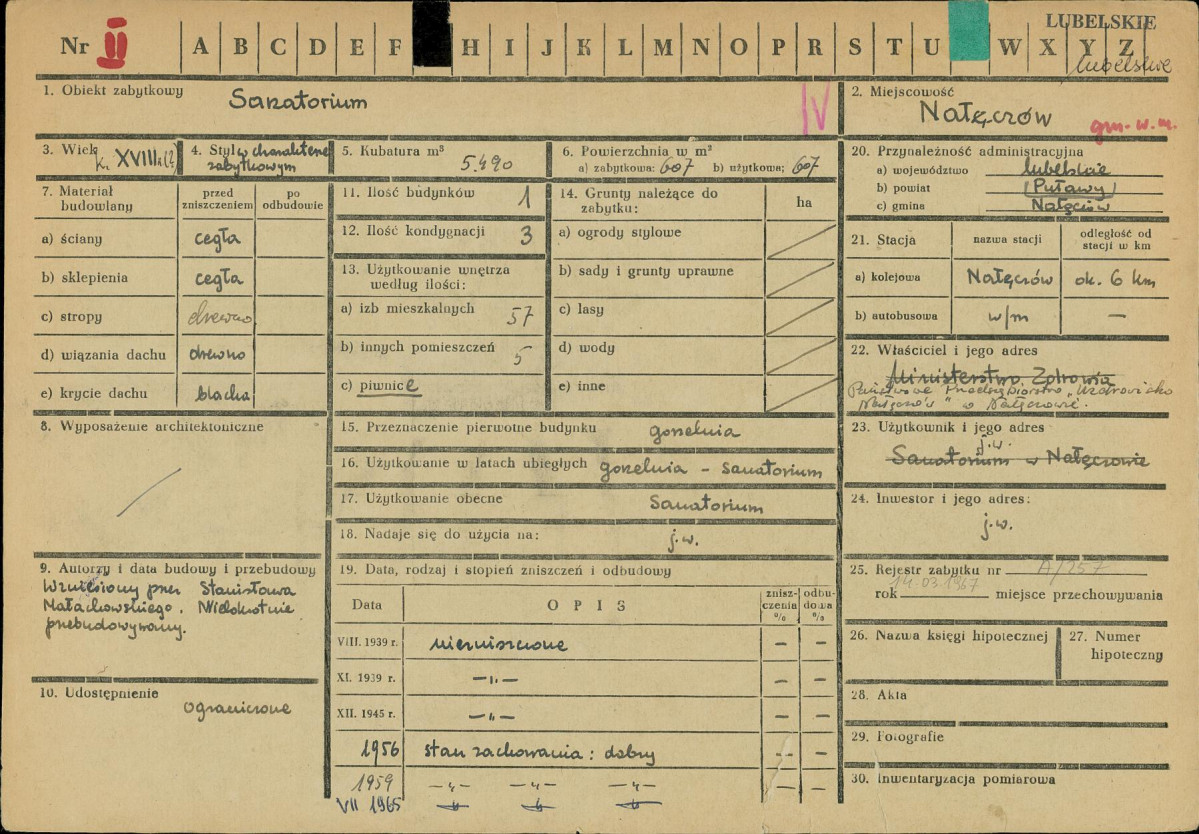 LUBELSKIE
Nr II A B C D E F H I J K L M N O P R S T U W X Y Z
lubelskie
1. Obiekt zabytkowy Sanatorium IV
2. Miejscowość
Nałęczów gm. w. m.
3. Wiek k. XVIII w. (?)
4. Styl w charakterze
zabytkowym
5. Kubatura m³ 5.490
6. Powierzchnia w m²
a) zabytkowa: 607 b) użytkowa: 607
7. Materiał
budowlany
przed
zniszczeniem
po
odbudowie
a) ściany cegła
b) sklepienia cegła
c) stropy drewno
d) wiązania dachu drewno
e) krycie dachu blacha
8. Wyposażenie architektoniczne
9. Autorzy i data budowy i przebudowy
Wzniesiony przez Stanisława
Małachowskiego. Wielokrotnie
przebudowywany.
10. Udostępnienie
ograniczone
11. Ilość budynków 1
12. Ilość kondygnacji 3
13. Użytkowanie wnętrza
według ilości:
a) izb mieszkalnych 57
b) innych pomieszczeń 5
c) piwnice
14. Grunty należące do
zabytku:
ha
a) ogrody stylowe
b) sady i grunty uprawne
c) lasy
d) wody
e) inne
15. Przeznaczenie pierwotne budynku gorzelnia
16. Użytkowanie w latach ubiegłych gorzelnia - sanatorium
17. Użytkowanie obecne Sanatorium
18. Nadaje się do użycia na: j.w.
19. Data, rodzaj i stopień zniszczeń i odbudowy
Data OPIS
znisz-
czenia
%
odbu-
dowa
%
VIII. 1939 r. niezniszczone – –
XI. 1939 r. –„– – –
XII. 1945 r. –„– – –
1956 stan zachowania: dobry – –
1959 –„– –„– –„– – –
VII 1965 –„– –„– –„–
20. Przynależność administracyjna
a) województwo lubelskie
b) powiat (Puławy)
c) gmina Nałęczów
21. Stacja
nazwa stacji
odległość od
stacji w km
a) kolejowa Nałęczów ok. 6 km
b) autobusowa w/m –
22. Właściciel i jego adres
Ministerstwo Zdrowia
Państwowe Przedsiębiorstwo „Uzdrowisko
Nałęczów" w Nałęczowie.
23. Użytkownik i jego adres
j.w.
Sanatorium w Nałęczowie
24. Inwestor i jego adres:
j.w.
25. Rejestr zabytku nr A/257
rok 14.03.1967 miejsce przechowywania
26. Nazwa księgi hipotecznej
27. Numer
hipoteczny
28. Akta
29. Fotografie
30. Inwentaryzacja pomiarowa